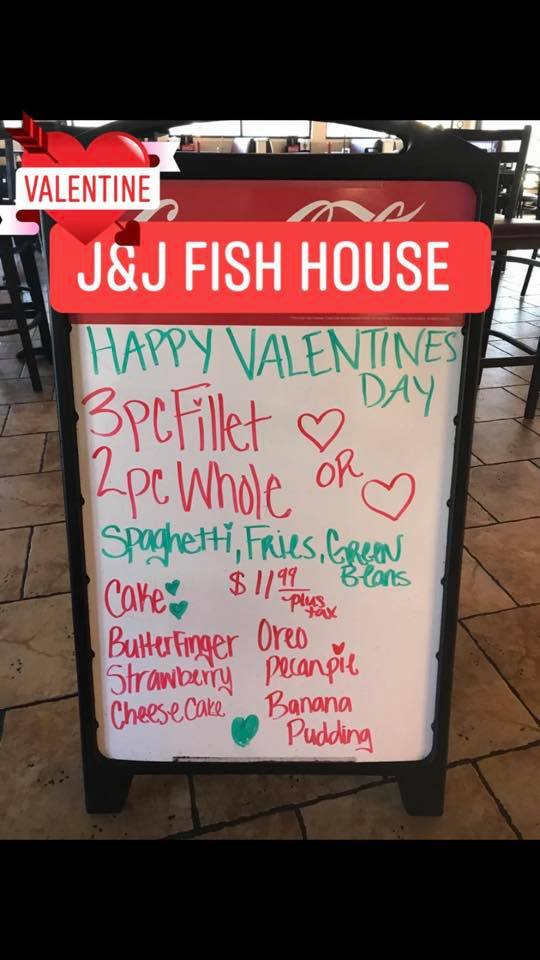 VALENTINE
J&J FISH HOUSE
HAPPY VALENTINES
DAY
3pc Fillet
OR
2pc Whole
Spaghetti, Fries, GREEN
Beans
$11.99
plus
tax
Cake
ButterFinger
Strawberry
CheeseCake
Oreo
Pecanpie
Banana
Pudding